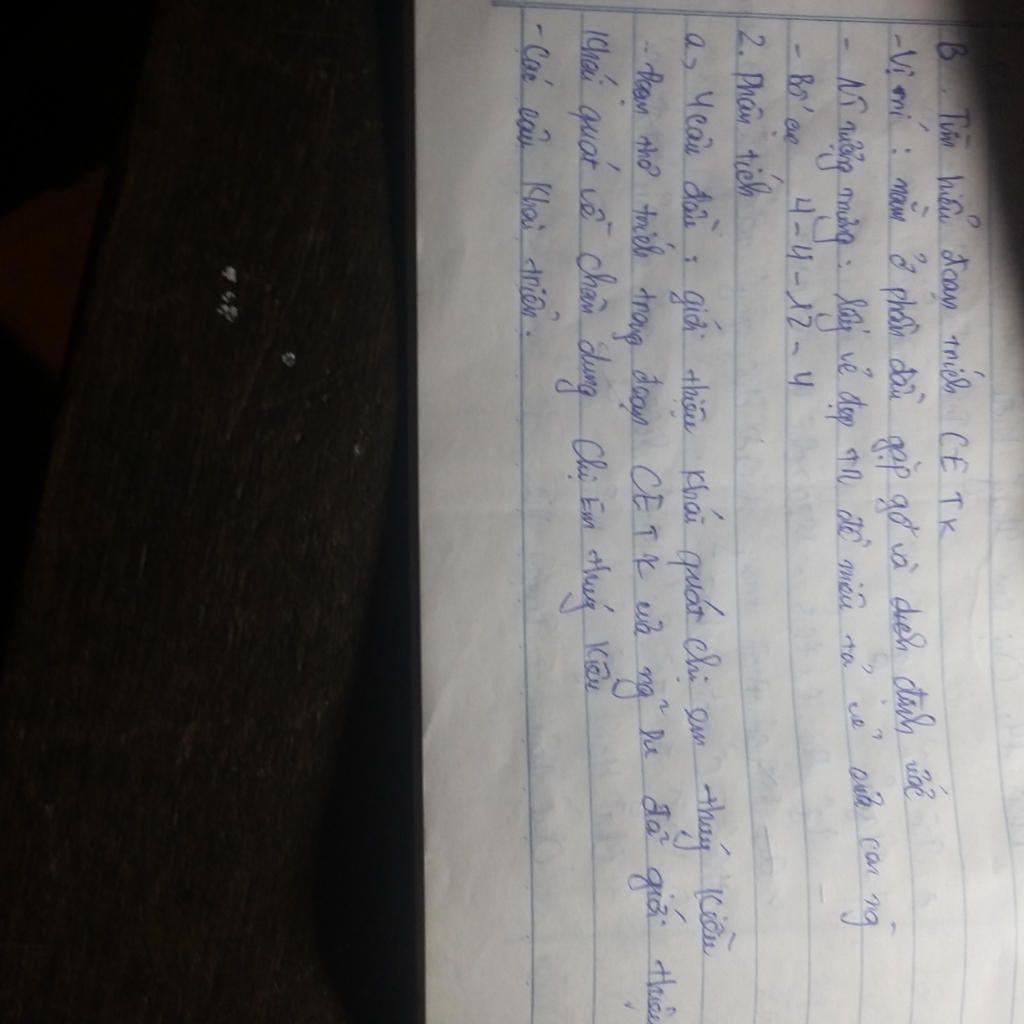 B. Tìm hiểu đoạn trích CETK
- Vị trí : nằm ở phần đầu gặp gỡ và đính ước
- NT tượng trưng : lấy vẻ đẹp TN để miêu tả vẻ của con ng
- Bố cục 4-4-12-4
2. Phân tích
a, 4 câu đầu : giới thiệu khái quát chị em thuý Kiều
- đoạn thơ trích trong đoạn CETK của ng~ du đã giới thiệu
Khái quát về chân dung chị Em thuý Kiều
- Các câu Khai triển.